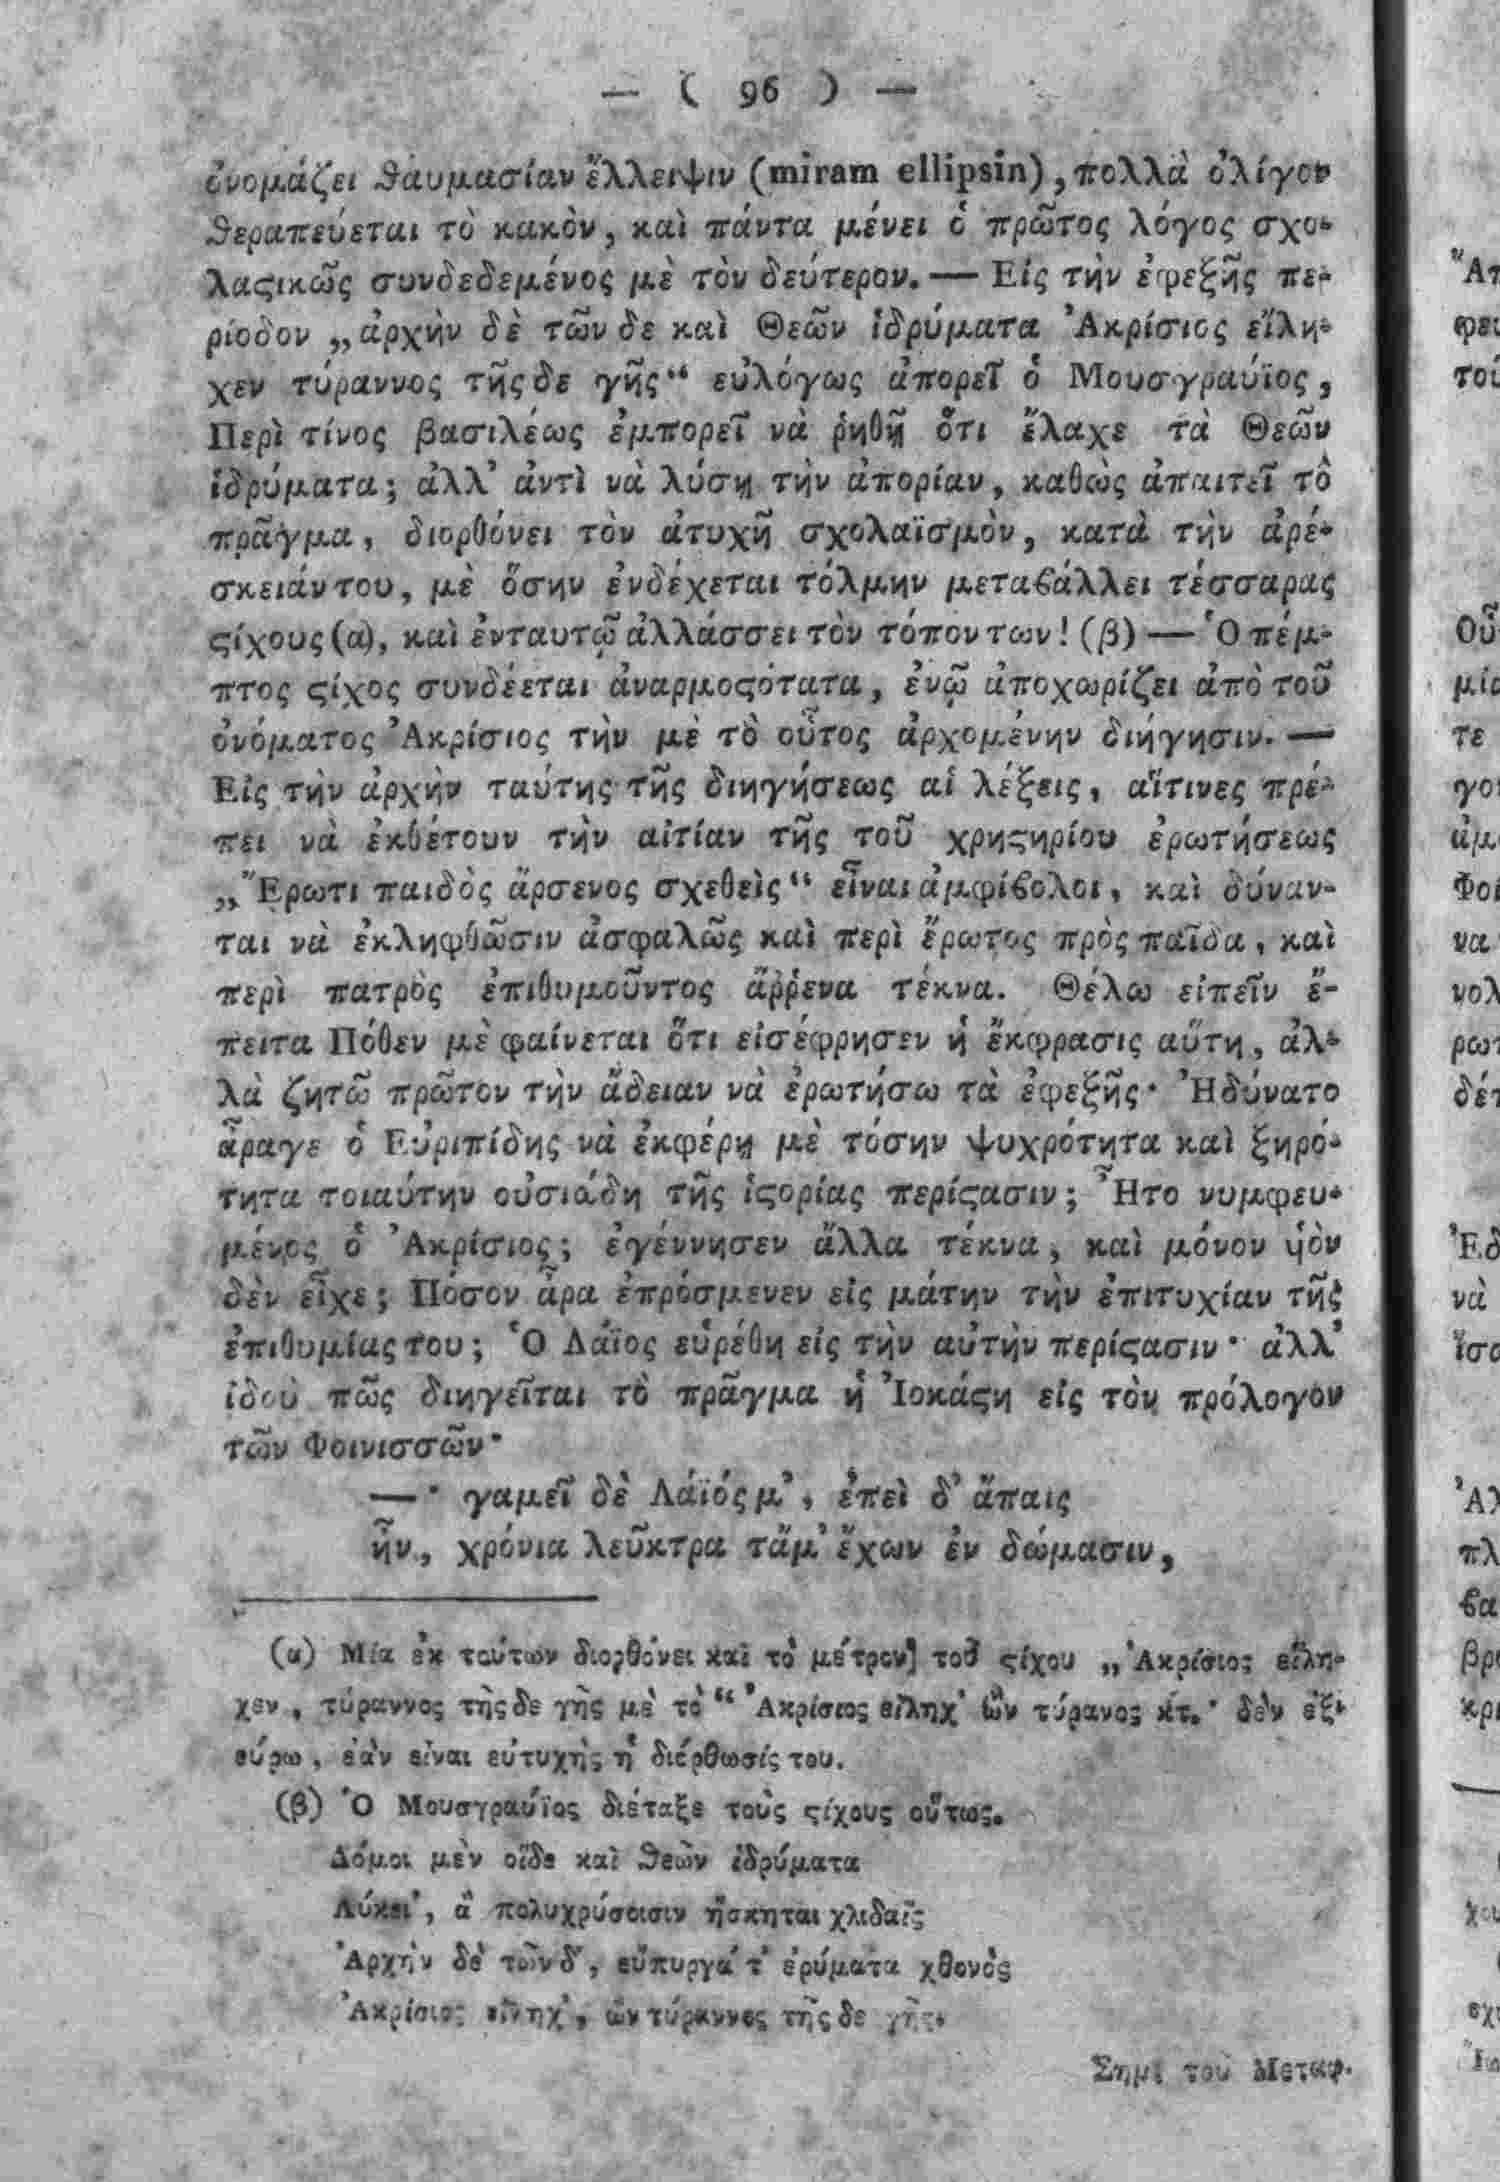 — ( 96 ) —
ὀνομάζει θαυμασίαν ἔλλειψιν (miram ellipsin), πολλὰ ὀλίγον
θεραπεύεται τὸ κακὸν, καὶ πάντα μένει ὁ πρῶτος λόγος σχο-
λαςικῶς συνδεδεμένος μὲ τὸν δεύτερον. — Εἰς τὴν ἐφεξῆς πε-
ρίοδον „ἀρχὴν δὲ τῶν δε καὶ Θεῶν ἱδρύματα Ἀκρίσιος εἴλη-
χεν τύραννος τῆς δε γῆς“ εὐλόγως ἀπορεῖ ὁ Μουσγραύϊος,
Περὶ τίνος βασιλέως ἐμπορεῖ νὰ ῥηθῇ ὅτι ἔλαχε τὰ Θεῶν
ἱδρύματα; ἀλλ' ἀντὶ νὰ λύσῃ τὴν ἀπορίαν, καθὼς ἀπαιτεῖ τὸ
πρᾶγμα, διορθόνει τὸν ἀτυχῆ σχολαϊσμὸν, κατὰ τὴν ἀρέ-
σκειάν του, μὲ ὅσην ἐνδέχεται τόλμην μεταβάλλει τέσσαρας
ςίχους (α), καὶ ἐνταυτῷ ἀλλάσσει τὸν τόπον των! (β) — Ὁ πέμ-
πτος ςίχος συνδέεται ἀναρμοςότατα, ἐνῷ ἀποχωρίζει ἀπὸ τοῦ
ὀνόματος Ἀκρίσιος τὴν μὲ τὸ οὗτος ἀρχομένην διήγησιν. —
Εἰς τὴν ἀρχὴν ταύτης τῆς διηγήσεως αἱ λέξεις, αἵτινες πρέ-
πει νὰ ἐκθέτουν τὴν αἰτίαν τῆς τοῦ χρηςηρίου ἐρωτήσεως
„Ἔρωτι παιδὸς ἄρσενος σχεθεὶς“ εἶναι ἀμφίβολοι, καὶ δύναν-
ται νὰ ἐκληφθῶσιν ἀσφαλῶς καὶ περὶ ἔρωτος πρὸς παῖδα, καὶ
περὶ πατρὸς ἐπιθυμοῦντος ἄῤῥενα τέκνα. Θέλω εἰπεῖν ἔ-
πειτα Πόθεν μὲ φαίνεται ὅτι εἰσέφρησεν ἡ ἔκφρασις αὕτη, ἀλ-
λὰ ζητῶ πρῶτον τὴν ἄδειαν νὰ ἐρωτήσω τὰ ἐφεξῆς· Ἠδύνατο
ἆραγε ὁ Εὐριπίδης νὰ ἐκφέρῃ μὲ τόσην ψυχρότητα καὶ ξηρό-
τητα τοιαύτην οὐσιώδη τῆς ἱςορίας περίςασιν; Ἦτο νυμφευ-
μένος ὁ Ἀκρίσιος; ἐγέννησεν ἄλλα τέκνα, καὶ μόνον ὑὸν
δὲν εἶχε; Πόσον ἆρα ἐπρόσμενεν εἰς μάτην τὴν ἐπιτυχίαν τῆς
ἐπιθυμίας του; Ὁ Λάϊος εὑρέθη εἰς τὴν αὐτὴν περίςασιν· ἀλλ'
ἰδοὺ πῶς διηγεῖται τὸ πρᾶγμα ἡ Ἰοκάςη εἰς τὸν πρόλογον
τῶν Φοινισσῶν·
— · γαμεῖ δὲ Λάϊός μ', ἐπεὶ δ' ἄπαις
ἦν, χρόνια λεῦκτρα τἄμ' ἔχων ἐν δώμασιν,
(α) Μία ἐκ τούτων διορθόνει καὶ τὸ μέτρον] τοῦ ςίχου „Ἀκρίσιος εἴλη-
χεν, τύραννος τῆς δε γῆς μὲ τὸ “ Ἀκρίσιος εἴληχ' ὢν τύρανος κτ.· δὲν ἐξ-
εύρω, ἐὰν εἶναι εὐτυχὴς ἡ διόρθωσίς του.
(β) Ὁ Μουσγραύϊος διέταξε τοὺς ςίχους οὕτως.
Δόμοι μὲν οἵδε καὶ θεῶν ἱδρύματα
Λύκει', ἃ πολυχρύσοισιν ἤσκηται χλιδαῖς
Ἀρχὴν δὲ τῶνδ', εὔπυργά τ' ἐρύματα χθονὸς
Ἀκρίσιος εἴληχ', ὢν τύραννος τῆς δε γῆς.
Σημ. τοῦ Μεταφ.